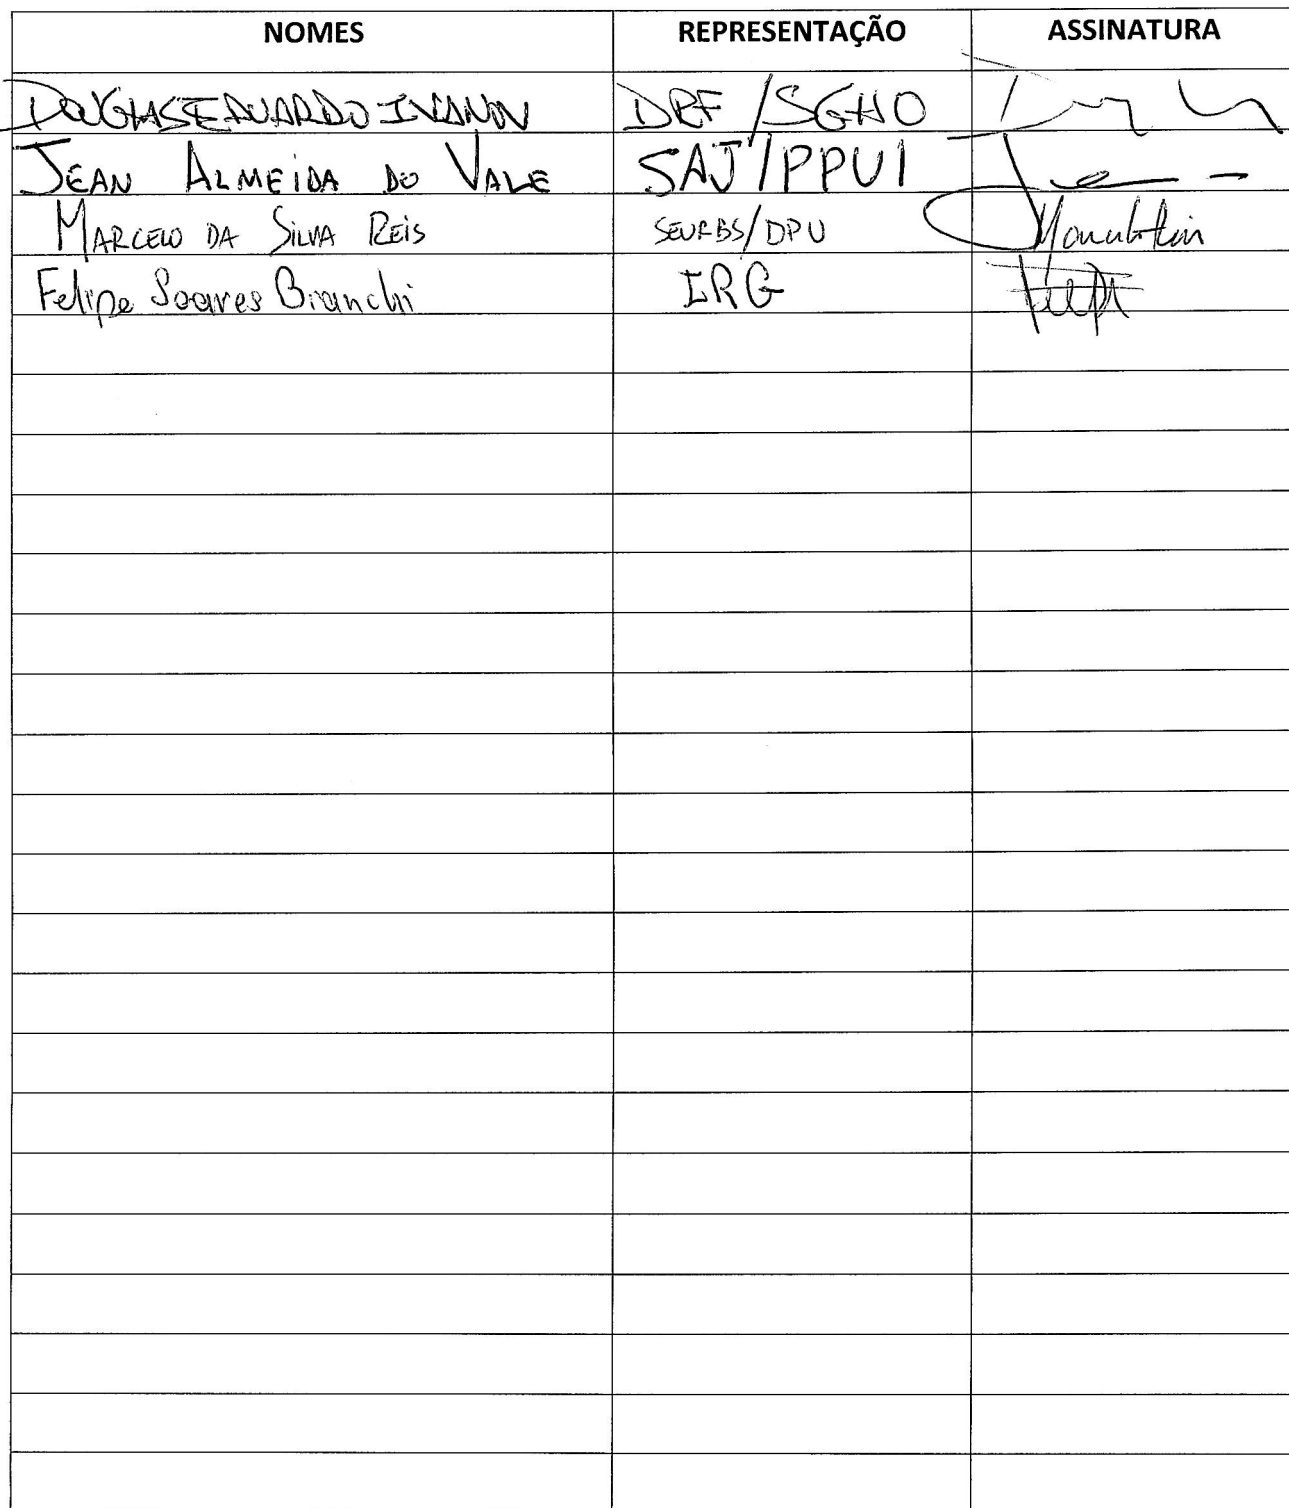 NOMES REPRESENTAÇÃO ASSINATURA
DOUGLAS EDUARDO DRF/SGHO
JEAN ALMEIDA DO VALE SAJ/PPUI
MARCELO DA SILVA REIS SEURBS/DPU
Felipe Soares Bianchi IRG